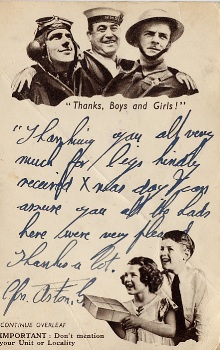 "Thanks, Boys and Girls!"
"Thanking you all very
much for Cigs kindly
received Xmas day I can
assure you all the lads
here were very pleased
Thanks a lot.
Aston.
CONTINUE OVERLEAF
IMPORTANT : Don't mention
your Unit or Locality